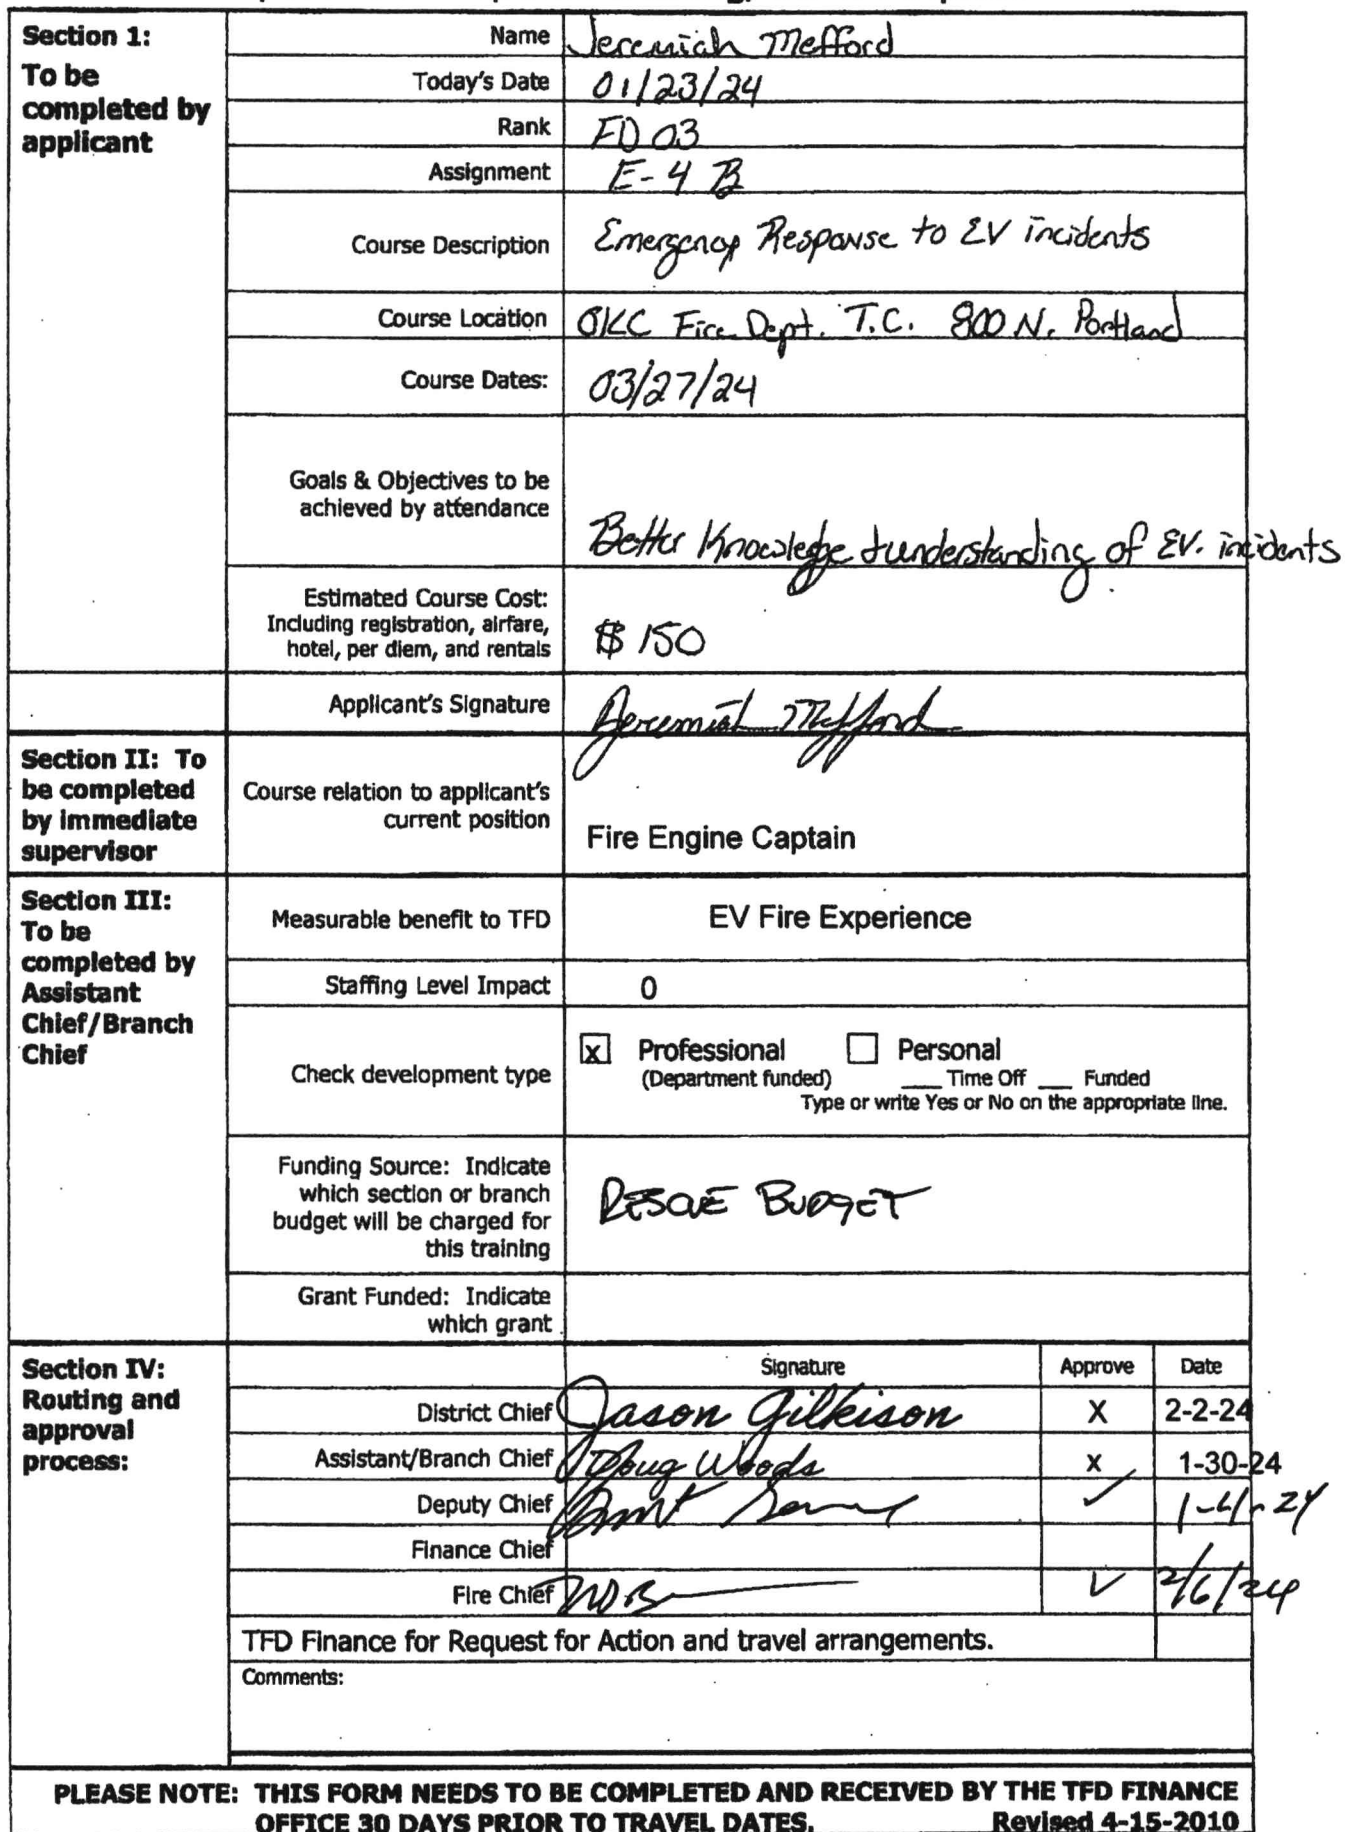 Section 1:
To be
completed by
applicant
Name Jeremiah Mefford
Today's Date 01/23/24
Rank FD 03
Assignment E-4 B
Course Description Emergency Response to EV incidents
Course Location OKC Fire Dept. T.C. 800 N. Portland
Course Dates: 03/27/24
Goals & Objectives to be
achieved by attendance
Better Knowledge & understanding of EV. incidents
Estimated Course Cost:
Including registration, airfare,
hotel, per diem, and rentals
$150
Applicant's Signature Jeremiah Mefford
Section II: To
be completed
by immediate
supervisor
Course relation to applicant's
current position
Fire Engine Captain
Section III:
To be
completed by
Assistant
Chief/Branch
Chief
Measurable benefit to TFD EV Fire Experience
Staffing Level Impact 0
Check development type
x Professional Personal
(Department funded) ___ Time Off ___ Funded
Type or write Yes or No on the appropriate line.
Funding Source: Indicate
which section or branch
budget will be charged for
this training
RESCUE BUDGET
Grant Funded: Indicate
which grant
Section IV:
Routing and
approval
process:
Signature Approve Date
District Chief Jason Gilkison X 2-2-24
Assistant/Branch Chief Doug Woods x 1-30-24
Deputy Chief ✓
Finance Chief
Fire Chief ✓ 2/6/24
TFD Finance for Request for Action and travel arrangements.
Comments:
PLEASE NOTE: THIS FORM NEEDS TO BE COMPLETED AND RECEIVED BY THE TFD FINANCE
OFFICE 30 DAYS PRIOR TO TRAVEL DATES. Revised 4-15-2010